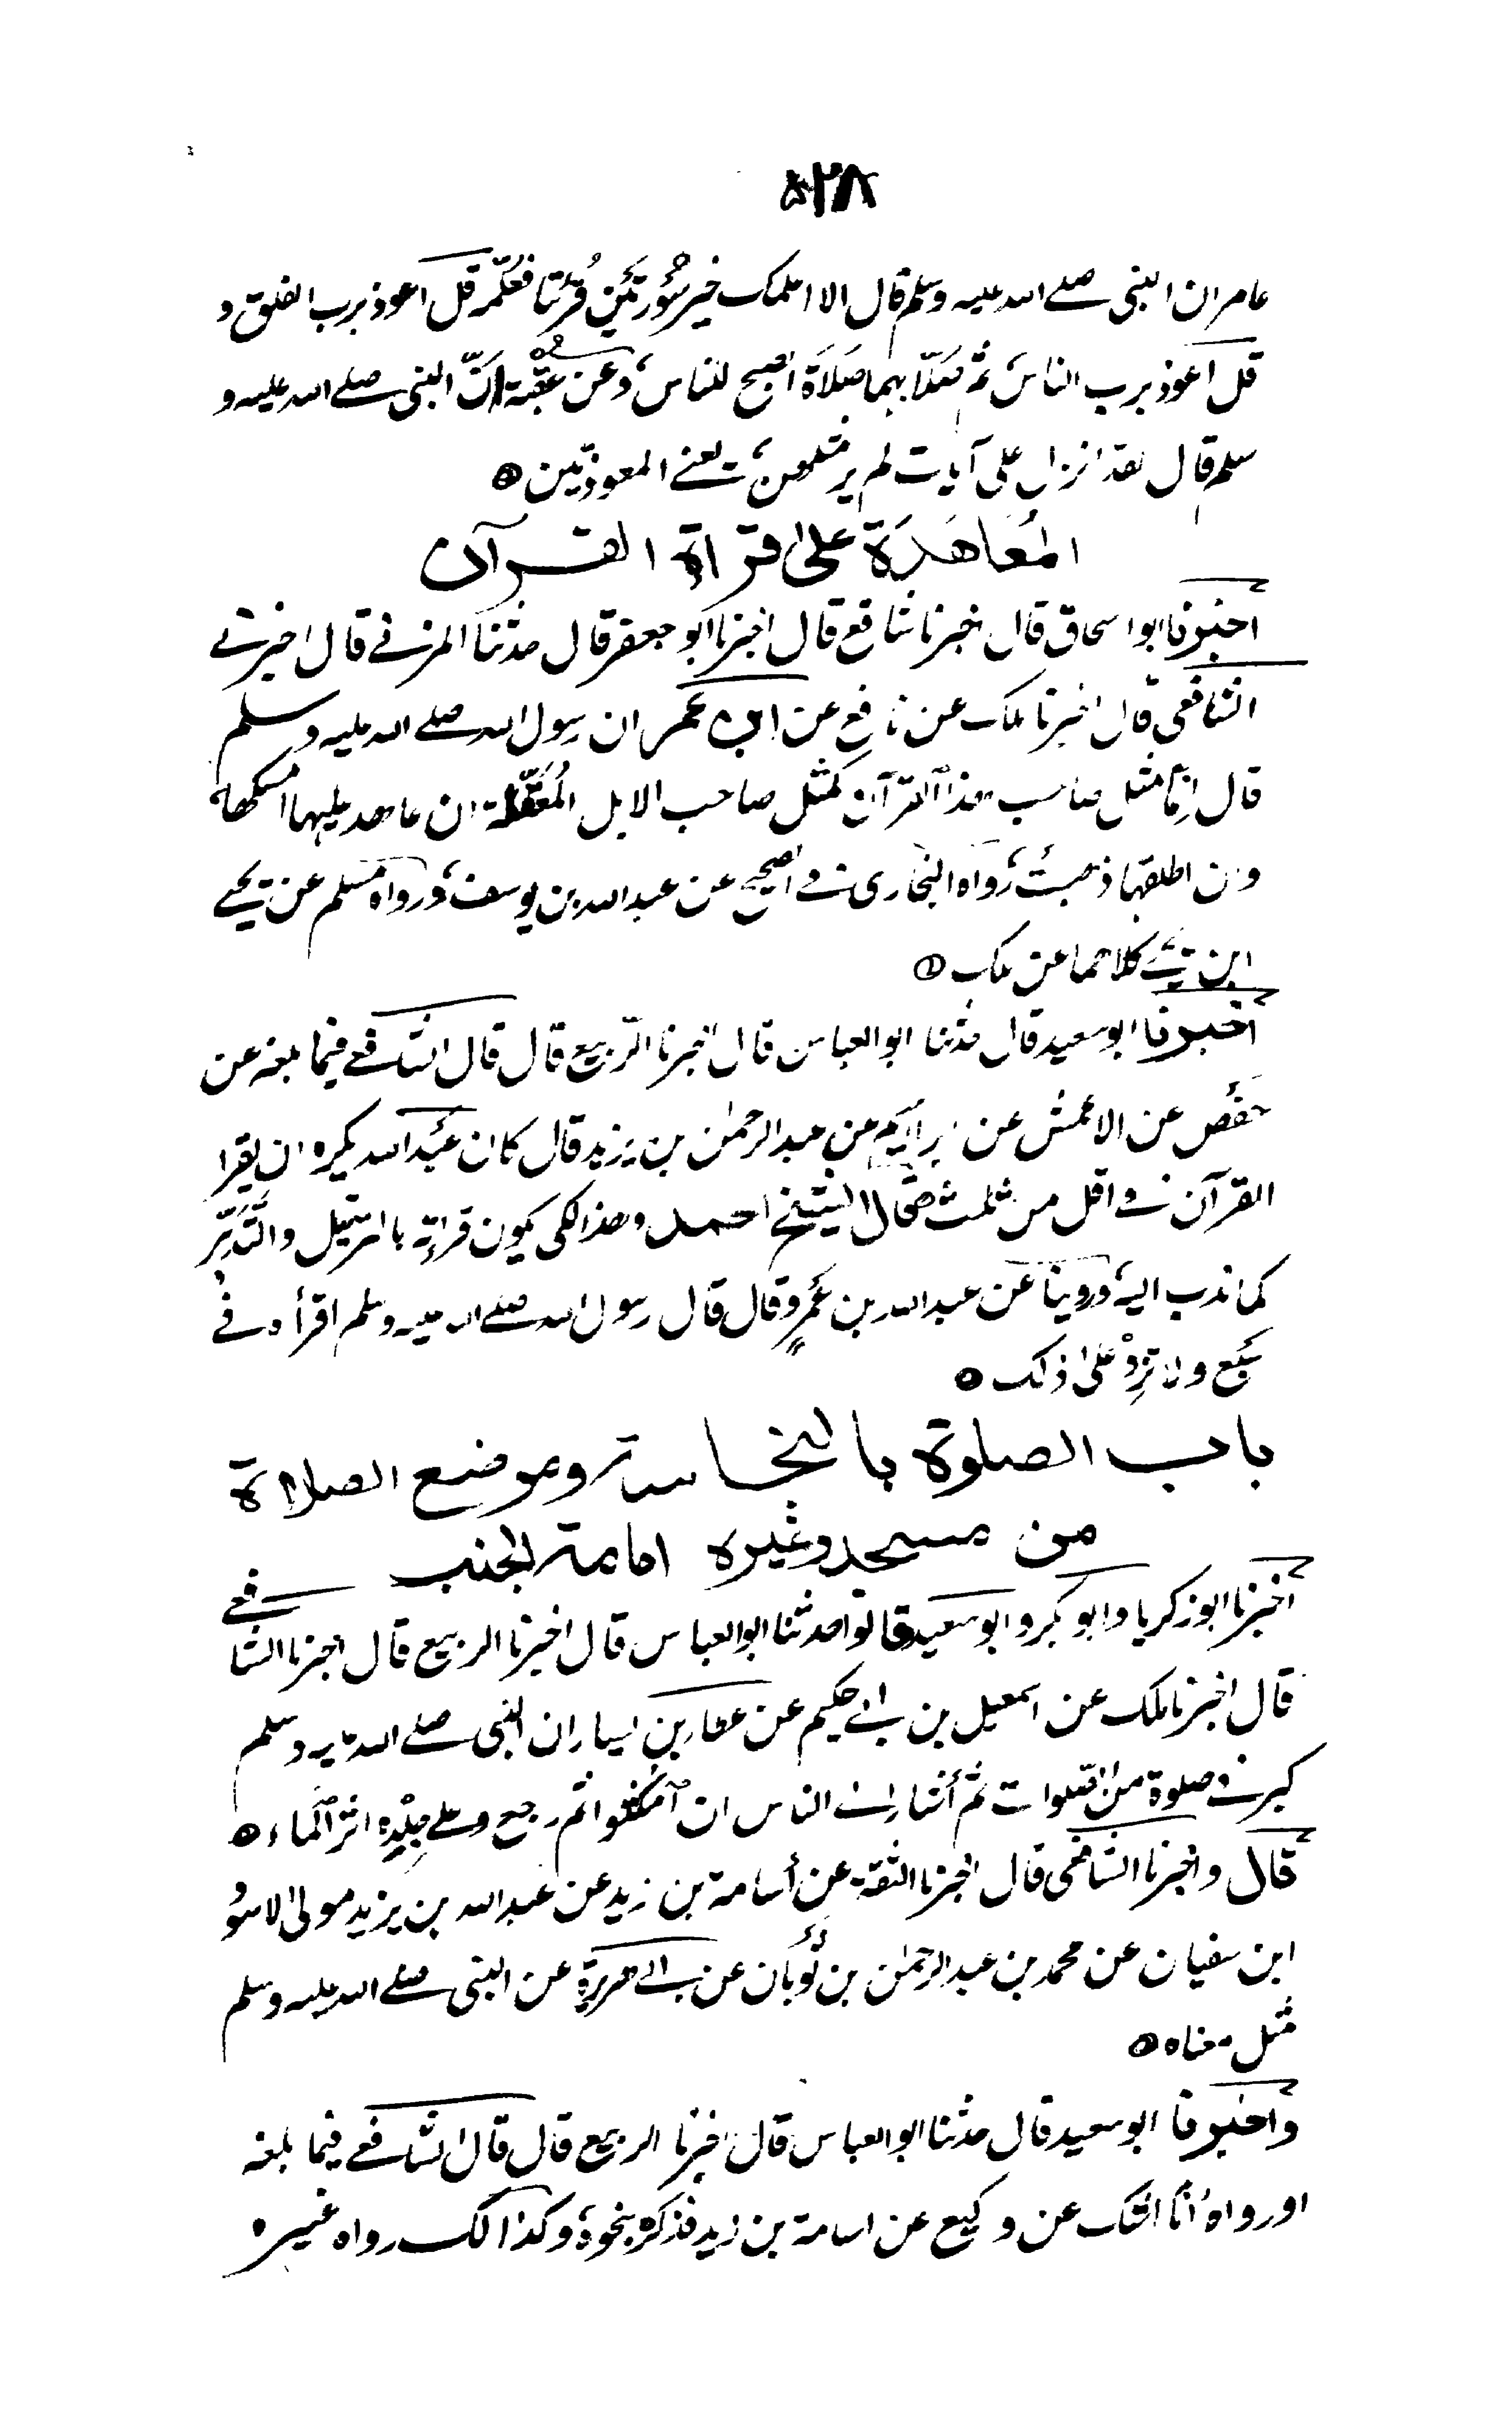 ٥٢٨
عامر ان النبى صلے الله عليه وسلم قال الا اعلمك خير سُورتَيْنِ قُرِئتا فعلّمه قل اعوذ برب الفلق و
قل اعوذ برب الناس ثم صَلّا بهما صَلَاةَ الصبح للناس وعن عقبة انّ النبى صلے الله عليه و
سلم قال لقد انزل على آيات لم ير مثلهن يعنے المعوذتين
المُعَاهَدَة على قراة القرآن
اخبرنا ابو اسحاق قال اخبرنا شافع قال اخبرنا ابو جعفر قال حدثنا المزنے قال اخبرنے
الشافعى قال اخبرنا ملك عن نافع عن ابن عمر ان رسول الله صلے الله عليه وسلم
قال انّما مثل صاحب هذا القرآن كمثل صاحب الابل المُعَقَّلة ان عاهد عليها امسكها
وان اطلقها ذهبت رواه البخارى فے الصحيح عن عبد الله بن يوسف ورواه مسلم عن يحيے
ابن يحيے كلاهما عن ملك
اخبرنا ابو سعيد قال حدثنا ابو العباس قال اخبرنا الربيع قال قال الشافعے فيما بلغه عن
حفص عن الاعمش عن ابراهيم عن عبد الرحمٰن بن يزيد قال كان عبْد الله يكره ان يقرا
القرآن فے اقل من ثلث قال الشيخ احمد وهذا لكى يكون قراءته بالترتيل والتَّدَبُّر
كما ندب اليه وروينا عن عبد الله بن عَمرٍو قال قال رسول الله صلے الله عليه وسلم اقرأه فے
سَبْع ولا تزِدْ علىٰ ذلك
باب الصلوة بالنجاسة وموضع الصلاة
من مسجد وغيره امامة الجنب
اخبرنا ابو زكريا وابو بكر وابو سعيد قالوا حدثنا ابو العباس قال اخبرنا الربيع قال اخبرنا الشافعے
قال اخبرنا ملك عن اسمعيل بن ابے حكيم عن عطاء بن يسار ان النبى صلے الله عليه وسلم
كبر فے صلوة من الصلوات ثم أشار الے الناس ان اَمكثوا ثم رجع وعلے جِلْدِه اثر الماء
قال واخبرنا الشافعى قال اخبرنا الثقة عن أسامة بن زيد عن عبد الله بن يزيد مولى الاسْود
ابن سفيان عن محمد بن عبد الرحمٰن بن ثَوْبان عن ابے هريرة عن النبى صلے الله عليه وسلم
مثل معناه
واخبرنا ابو سعيد قال حدثنا ابو العباس قال اخبرنا الربيع قال قال الشافعے فيما بلغه
او رواه أنا اشك عن وكيع عن اسامة بن زيد فذكره بنحوه وكذالك رواه غيره